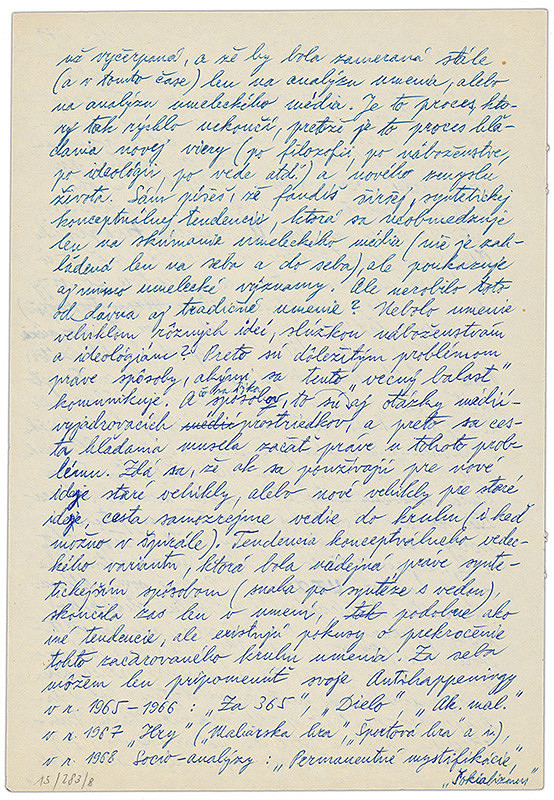 už vyčerpaná, a že by bola zameraná stále
(a v tomto čase) len na analýzu umenia, alebo
na analýzu umeleckého média. Je to proces, kto-
rý tak rýchlo nekončí, pretože je to proces hľa-
dania novej viery (po filozofii, po náboženstve,
po ideológii, po vede atď.) a nového zmyslu
života. Sám píšeš, že fandíš širšej, syntetickej
konceptuálnej tendencii, ktorá sa neobmedzuje
len na skúmanie umeleckého média (nie je zah-
ľadená len na seba a do seba), ale poukazuje
aj mimo umelecké významy. Ale nerobilo toto
oddávna aj tradičné umenie? Nebolo umenie
vehiklom rôznych ideí, slúžkou náboženstvám
a ideológiám? Preto sú dôležitým problémom
práve spôsoby, akými sa tento „večný balast"
komunikuje. A čo sa týka spôsobov, to sú aj otázky médií-
vyjadrovacích médií prostriedkov, a preto sa ces-
ta hľadania musela začať práve u tohoto prob-
lému. Zdá sa, že ak sa používajú pre nové
ideje staré vehikly, alebo nové vehikly pre staré
ideje, cesta samozrejme vedie do kruhu (i keď
možno v špirále). Tendencia konceptuálneho vedec-
kého variantu, ktorá bola vedená práve synte-
tickejším spôsobom (snaha po syntéze s vedou),
skončila zas len v umení, tak podobne ako
iné tendencie, ale existujú pokusy o prekročenie
tohto začarovaného kruhu umenia. Za seba
môžem len pripomenúť svoje Antihappeningy
v r. 1965–1966: „Za 365", „Dielo", „Ak. mal."
v r. 1967 „Hry" („Maliarska hra", „Športová hra" a i.),
v r. 1968 Socio-analýzy: „Permanentné mystifikácie",
15/283/8